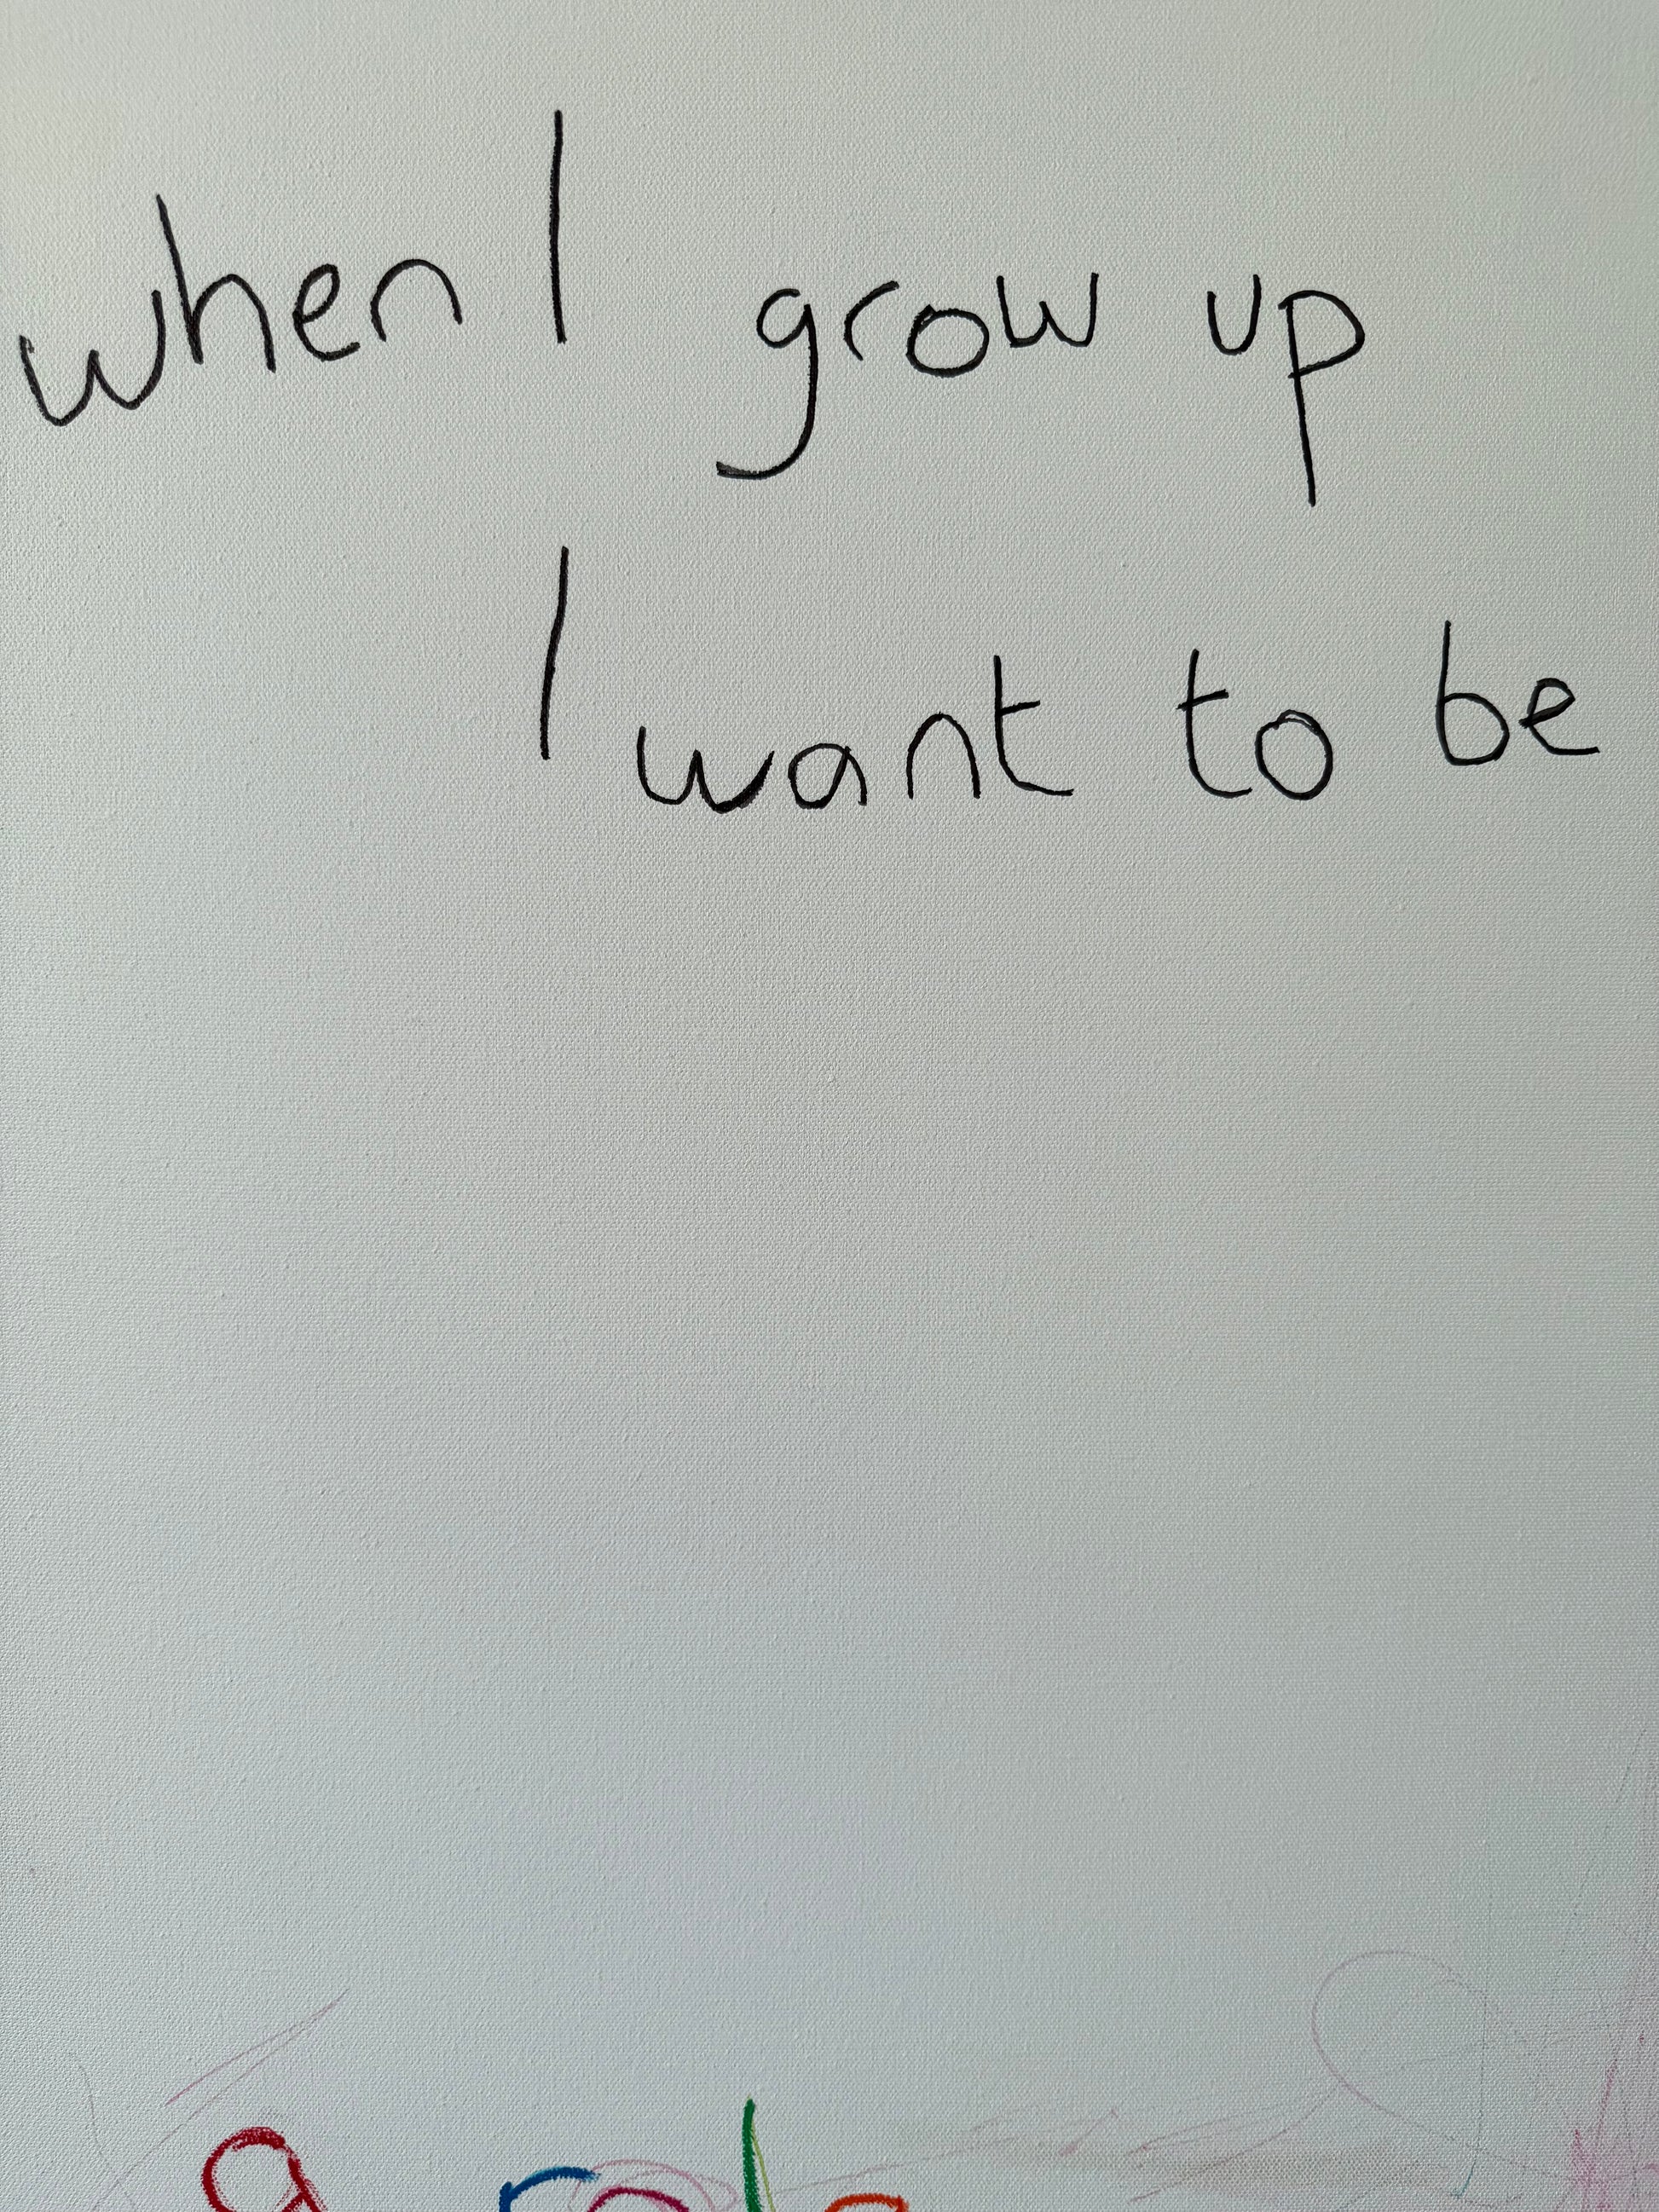 when I grow up
I want to be
a